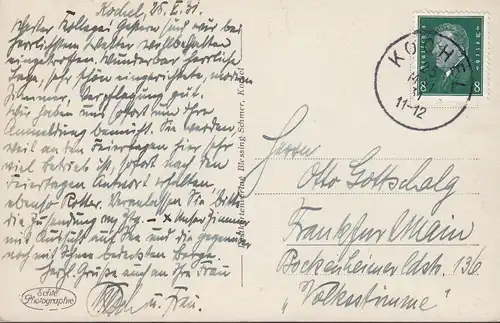 Kochel, 25. V. 31.
Werter Kollege! Gestern sind wir bei
herrlichstem Wetter wohlbehalten
eingetroffen. Wunderbar herrliche
Lage, sehr schön eingerichtete, moderne
Zimmer, Verpflegung gut.
Wir haben uns sofort um Ihre
Anmeldung bemüht. Sie werden,
weil an den Feiertagen hier sehr
viel Betrieb ist, sofort nach den
Feiertagen Antwort erhalten
ebenso Rotter. Veranlassen Sie bitte
die Zusendung der Ztg. – x Unser Zimmer
mit Aussicht auf See und die gegenüber
noch mit Schnee bedeckten Berge.
Herzl. Grüße auch an Ihre Frau
u. Frau.
Echte
Photographie
Postkartenverlag Blessing-Schmer, Kochel
KOCHEL
11-12
8 8
Herrn
Otto Gottschalg
Frankfurt Main
Bockenheimerldstr. 136
„Volksstimme"